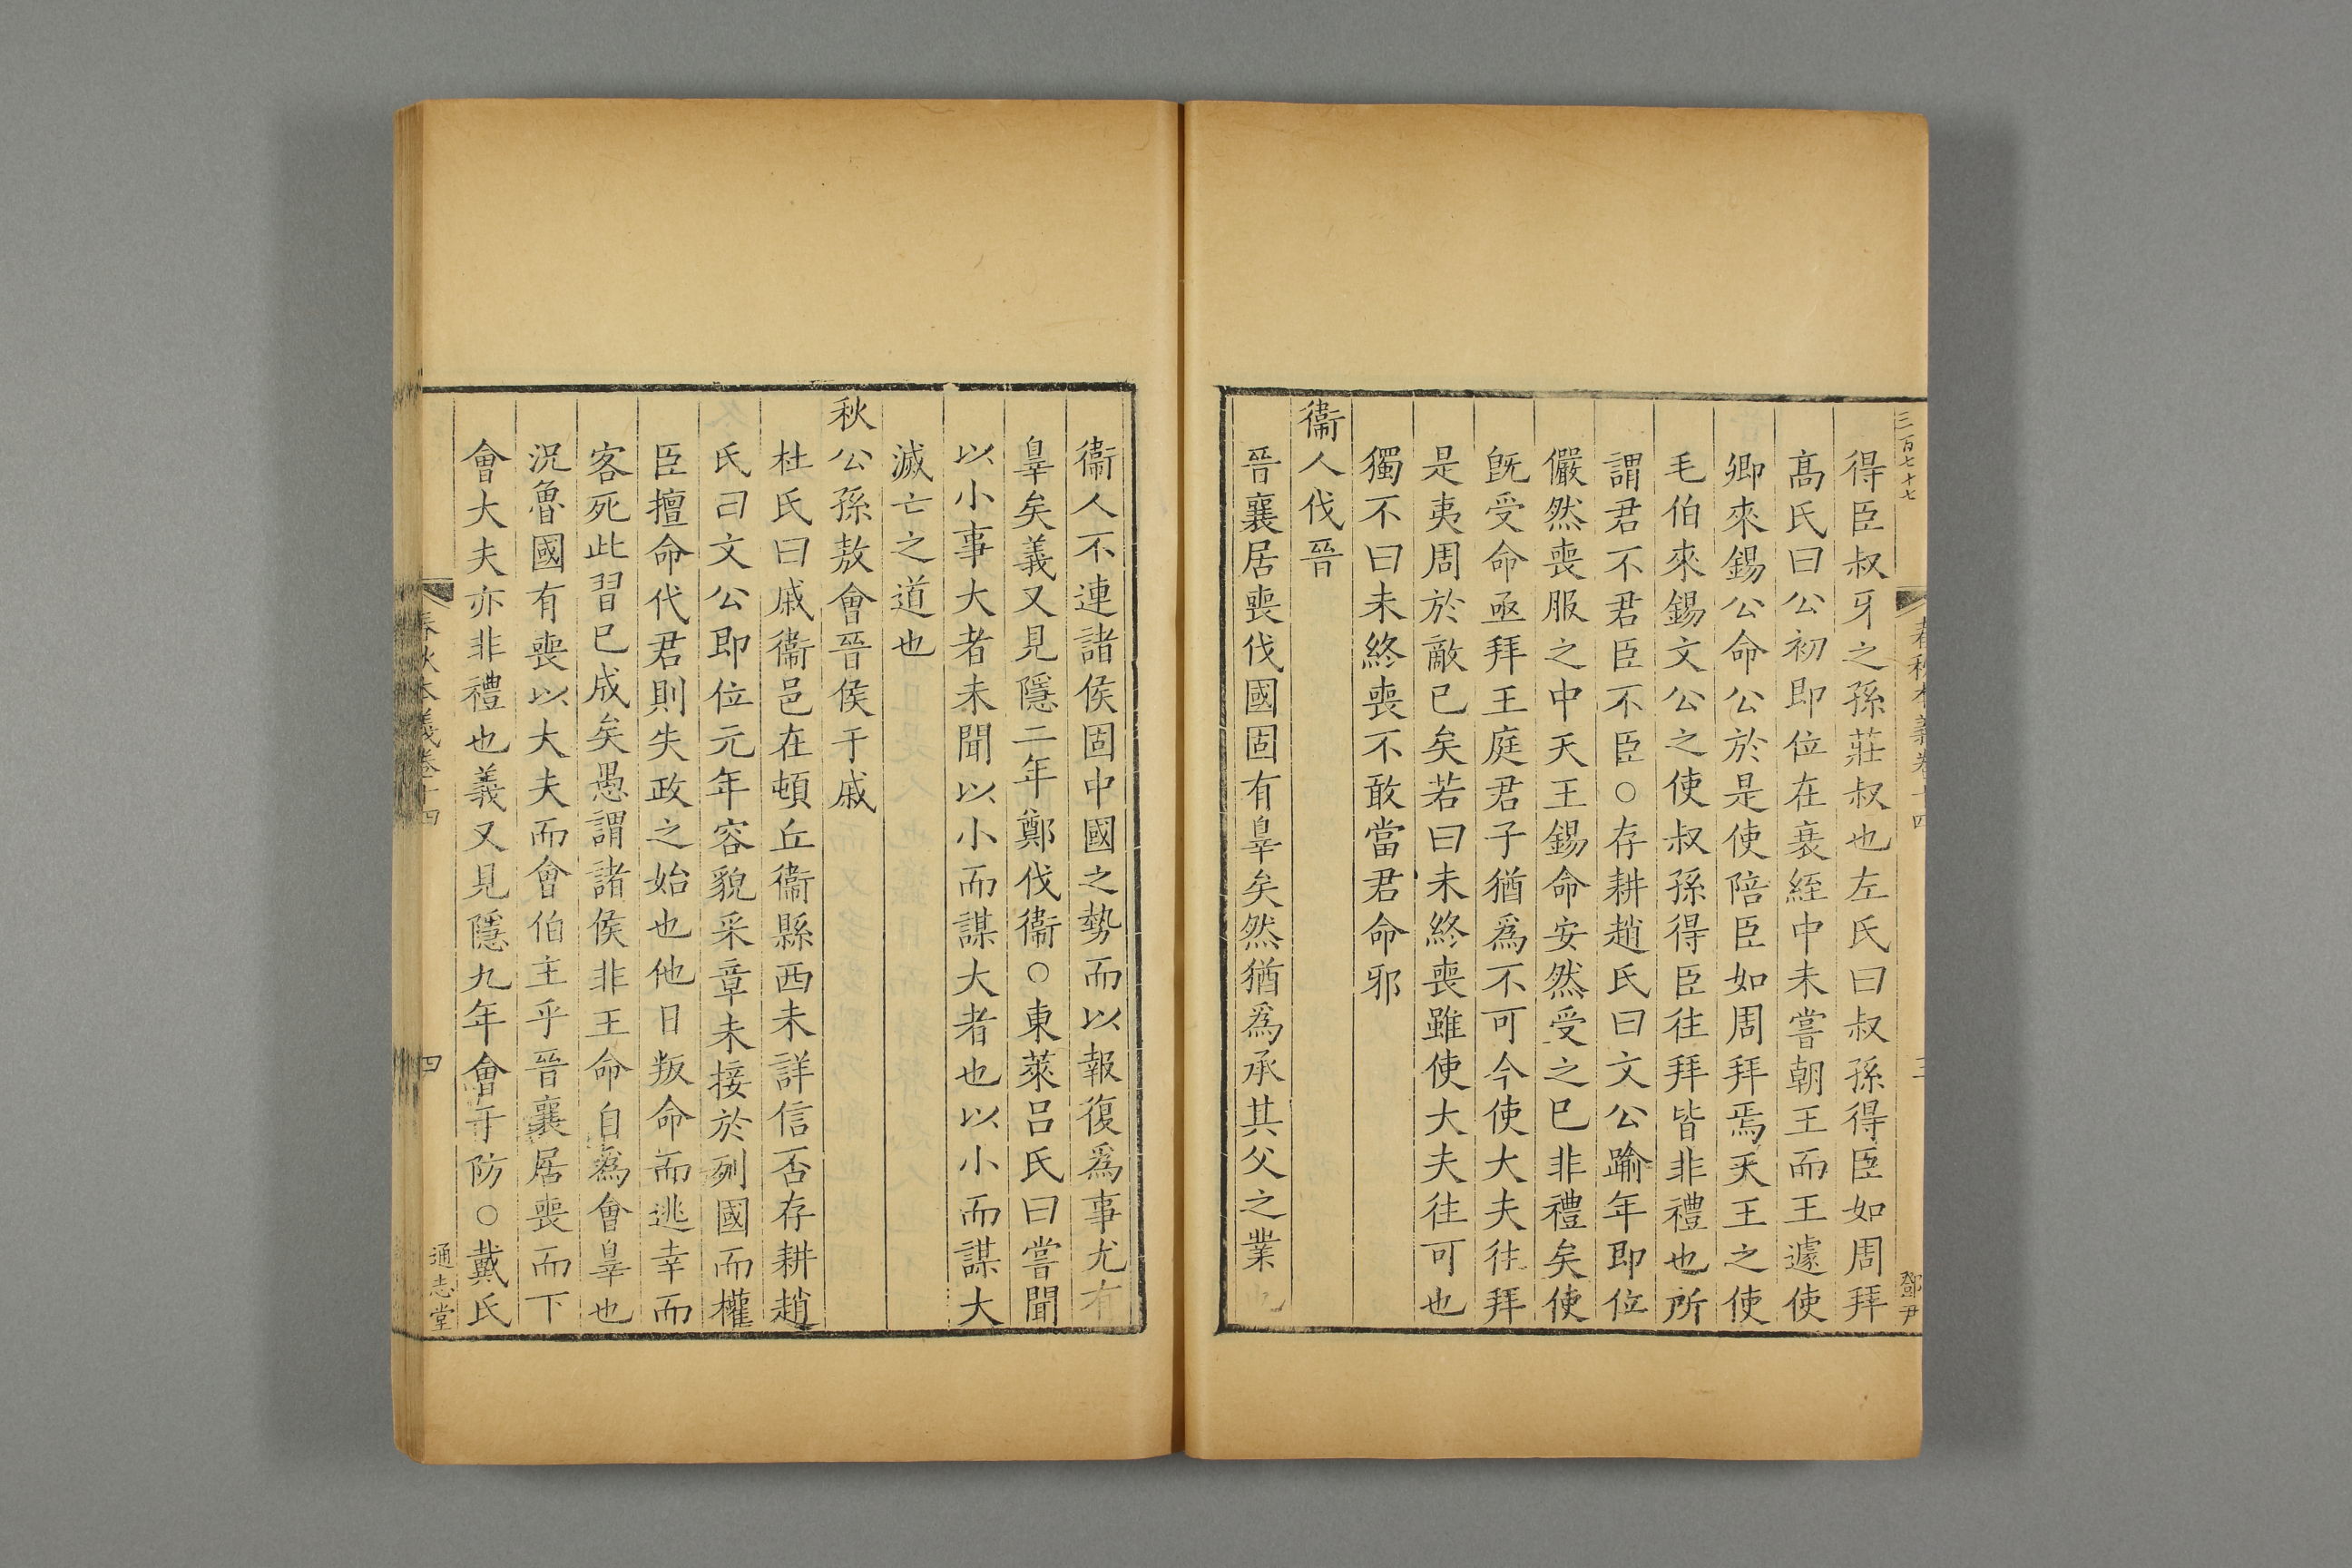 三百七十七
春秋本義卷十四
三
鄧尹
得臣叔牙之孫莊叔也左氏曰叔孫得臣如周拜
髙氏曰公初即位在衰絰中未嘗朝王而王遽使
卿來錫公命公於是使陪臣如周拜焉天王之使
毛伯來錫文公之使叔孫得臣往拜皆非禮也所
謂君不君臣不臣○存耕趙氏曰文公踰年即位
儼然喪服之中天王錫命安然受之已非禮矣使
旣受命亟拜王庭君子猶爲不可今使大夫往拜
是夷周於敵已矣若曰未終喪雖使大夫往可也
獨不曰未終喪不敢當君命邪
衞人伐晉
晉襄居喪伐國固有辠矣然猶爲承其父之業
衞人不連諸侯固中國之勢而以報復爲事尤有
辠矣義又見隱二年鄭伐衞○東萊呂氏曰嘗聞
以小事大者未聞以小而謀大者也以小而謀大
滅亡之道也
秋公孫敖會晉侯于戚
杜氏曰戚衞邑在頓丘衞縣西未詳信否存耕趙
氏曰文公即位元年容貌采章未接於列國而權
臣擅命代君則失政之始也他日叛命而逃幸而
客死此習已成矣愚謂諸侯非王命自爲會辠也
況魯國有喪以大夫而會伯主乎晉襄居喪而下
會大夫亦非禮也義又見隱九年會于防○戴氏
春秋本義卷十四
四
通志堂